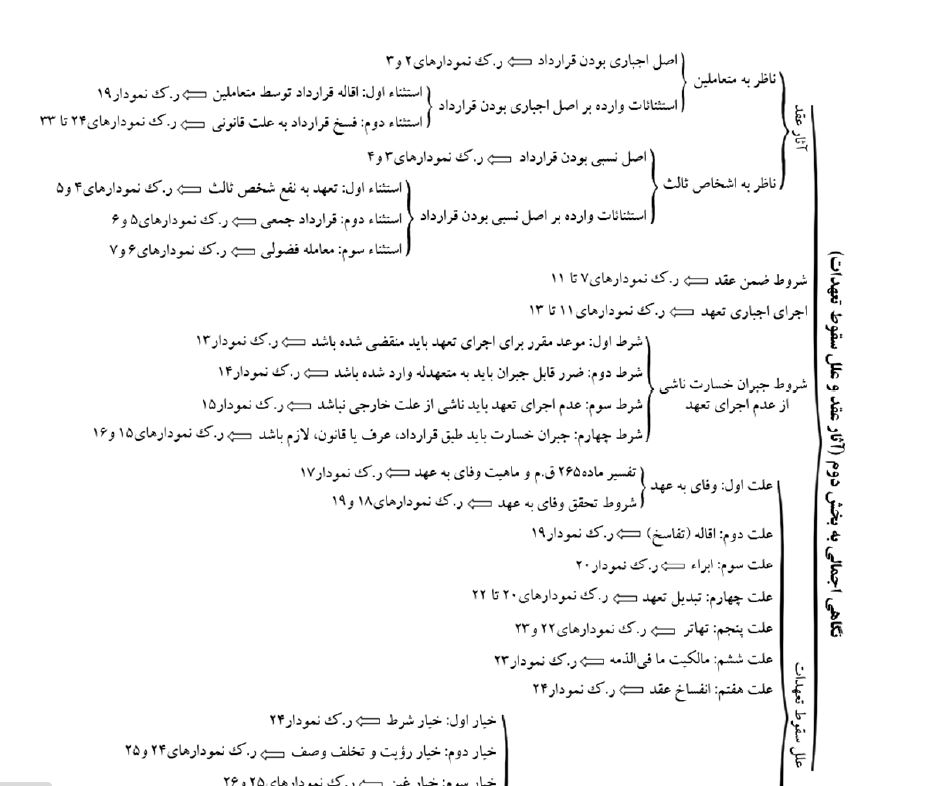 نگاهی اجمالی به بخش دوم (آثار عقد و علل سقوط تعهدات)
آثار عقد
ناظر به متعاملین
اصل اجباری بودن قرارداد ⇐ ر.ک نمودارهای۲ و۳
استثنائات وارده بر اصل اجباری بودن قرارداد
استثناء اول: اقاله قرارداد توسط متعاملین ⇐ ر.ک نمودار۱۹
استثناء دوم: فسخ قرارداد به علت قانونی ⇐ ر.ک نمودارهای۲۴ تا ۳۳
ناظر به اشخاص ثالث
اصل نسبی بودن قرارداد ⇐ ر.ک نمودارهای۳ و۴
استثنائات وارده بر اصل نسبی بودن قرارداد
استثناء اول: تعهد به نفع شخص ثالث ⇐ ر.ک نمودارهای۴ و۵
استثناء دوم: قرارداد جمعی ⇐ ر.ک نمودارهای۵ و۶
استثناء سوم: معامله فضولی ⇐ ر.ک نمودارهای۶ و۷
شروط ضمن عقد ⇐ ر.ک نمودارهای۷ تا ۱۱
اجرای اجباری تعهد ⇐ ر.ک نمودارهای۱۱ تا ۱۳
شروط جبران خسارت ناشی
از عدم اجرای تعهد
شرط اول: موعد مقرر برای اجرای تعهد باید منقضی شده باشد ⇐ ر.ک نمودار۱۳
شرط دوم: ضرر قابل جبران باید به متعهدله وارد شده باشد ⇐ ر.ک نمودار۱۴
شرط سوم: عدم اجرای تعهد باید ناشی از علت خارجی نباشد ⇐ ر.ک نمودار۱۵
شرط چهارم: جبران خسارت باید طبق قرارداد، عرف یا قانون، لازم باشد ⇐ ر.ک نمودارهای۱۵ و۱۶
علل سقوط تعهدات
علت اول: وفای به عهد
تفسیر ماده۲۶۵ ق.م و ماهیت وفای به عهد ⇐ ر.ک نمودار۱۷
شروط تحقق وفای به عهد ⇐ ر.ک نمودارهای۱۸ و۱۹
علت دوم: اقاله (تفاسخ) ⇐ ر.ک نمودار۱۹
علت سوم: ابراء ⇐ ر.ک نمودار۲۰
علت چهارم: تبدیل تعهد ⇐ ر.ک نمودارهای۲۰ تا ۲۲
علت پنجم: تهاتر ⇐ ر.ک نمودارهای۲۲ و۲۳
علت ششم: مالکیت ما فی‌الذمه ⇐ ر.ک نمودار۲۳
علت هفتم: انفساخ عقد ⇐ ر.ک نمودار۲۴
خیار اول: خیار شرط ⇐ ر.ک نمودار۲۴
خیار دوم: خیار رؤیت و تخلف وصف ⇐ ر.ک نمودارهای۲۴ و۲۵
خیار سوم: خیار غبن ⇐ ر.ک نمودارهای۲۵ و۲۶